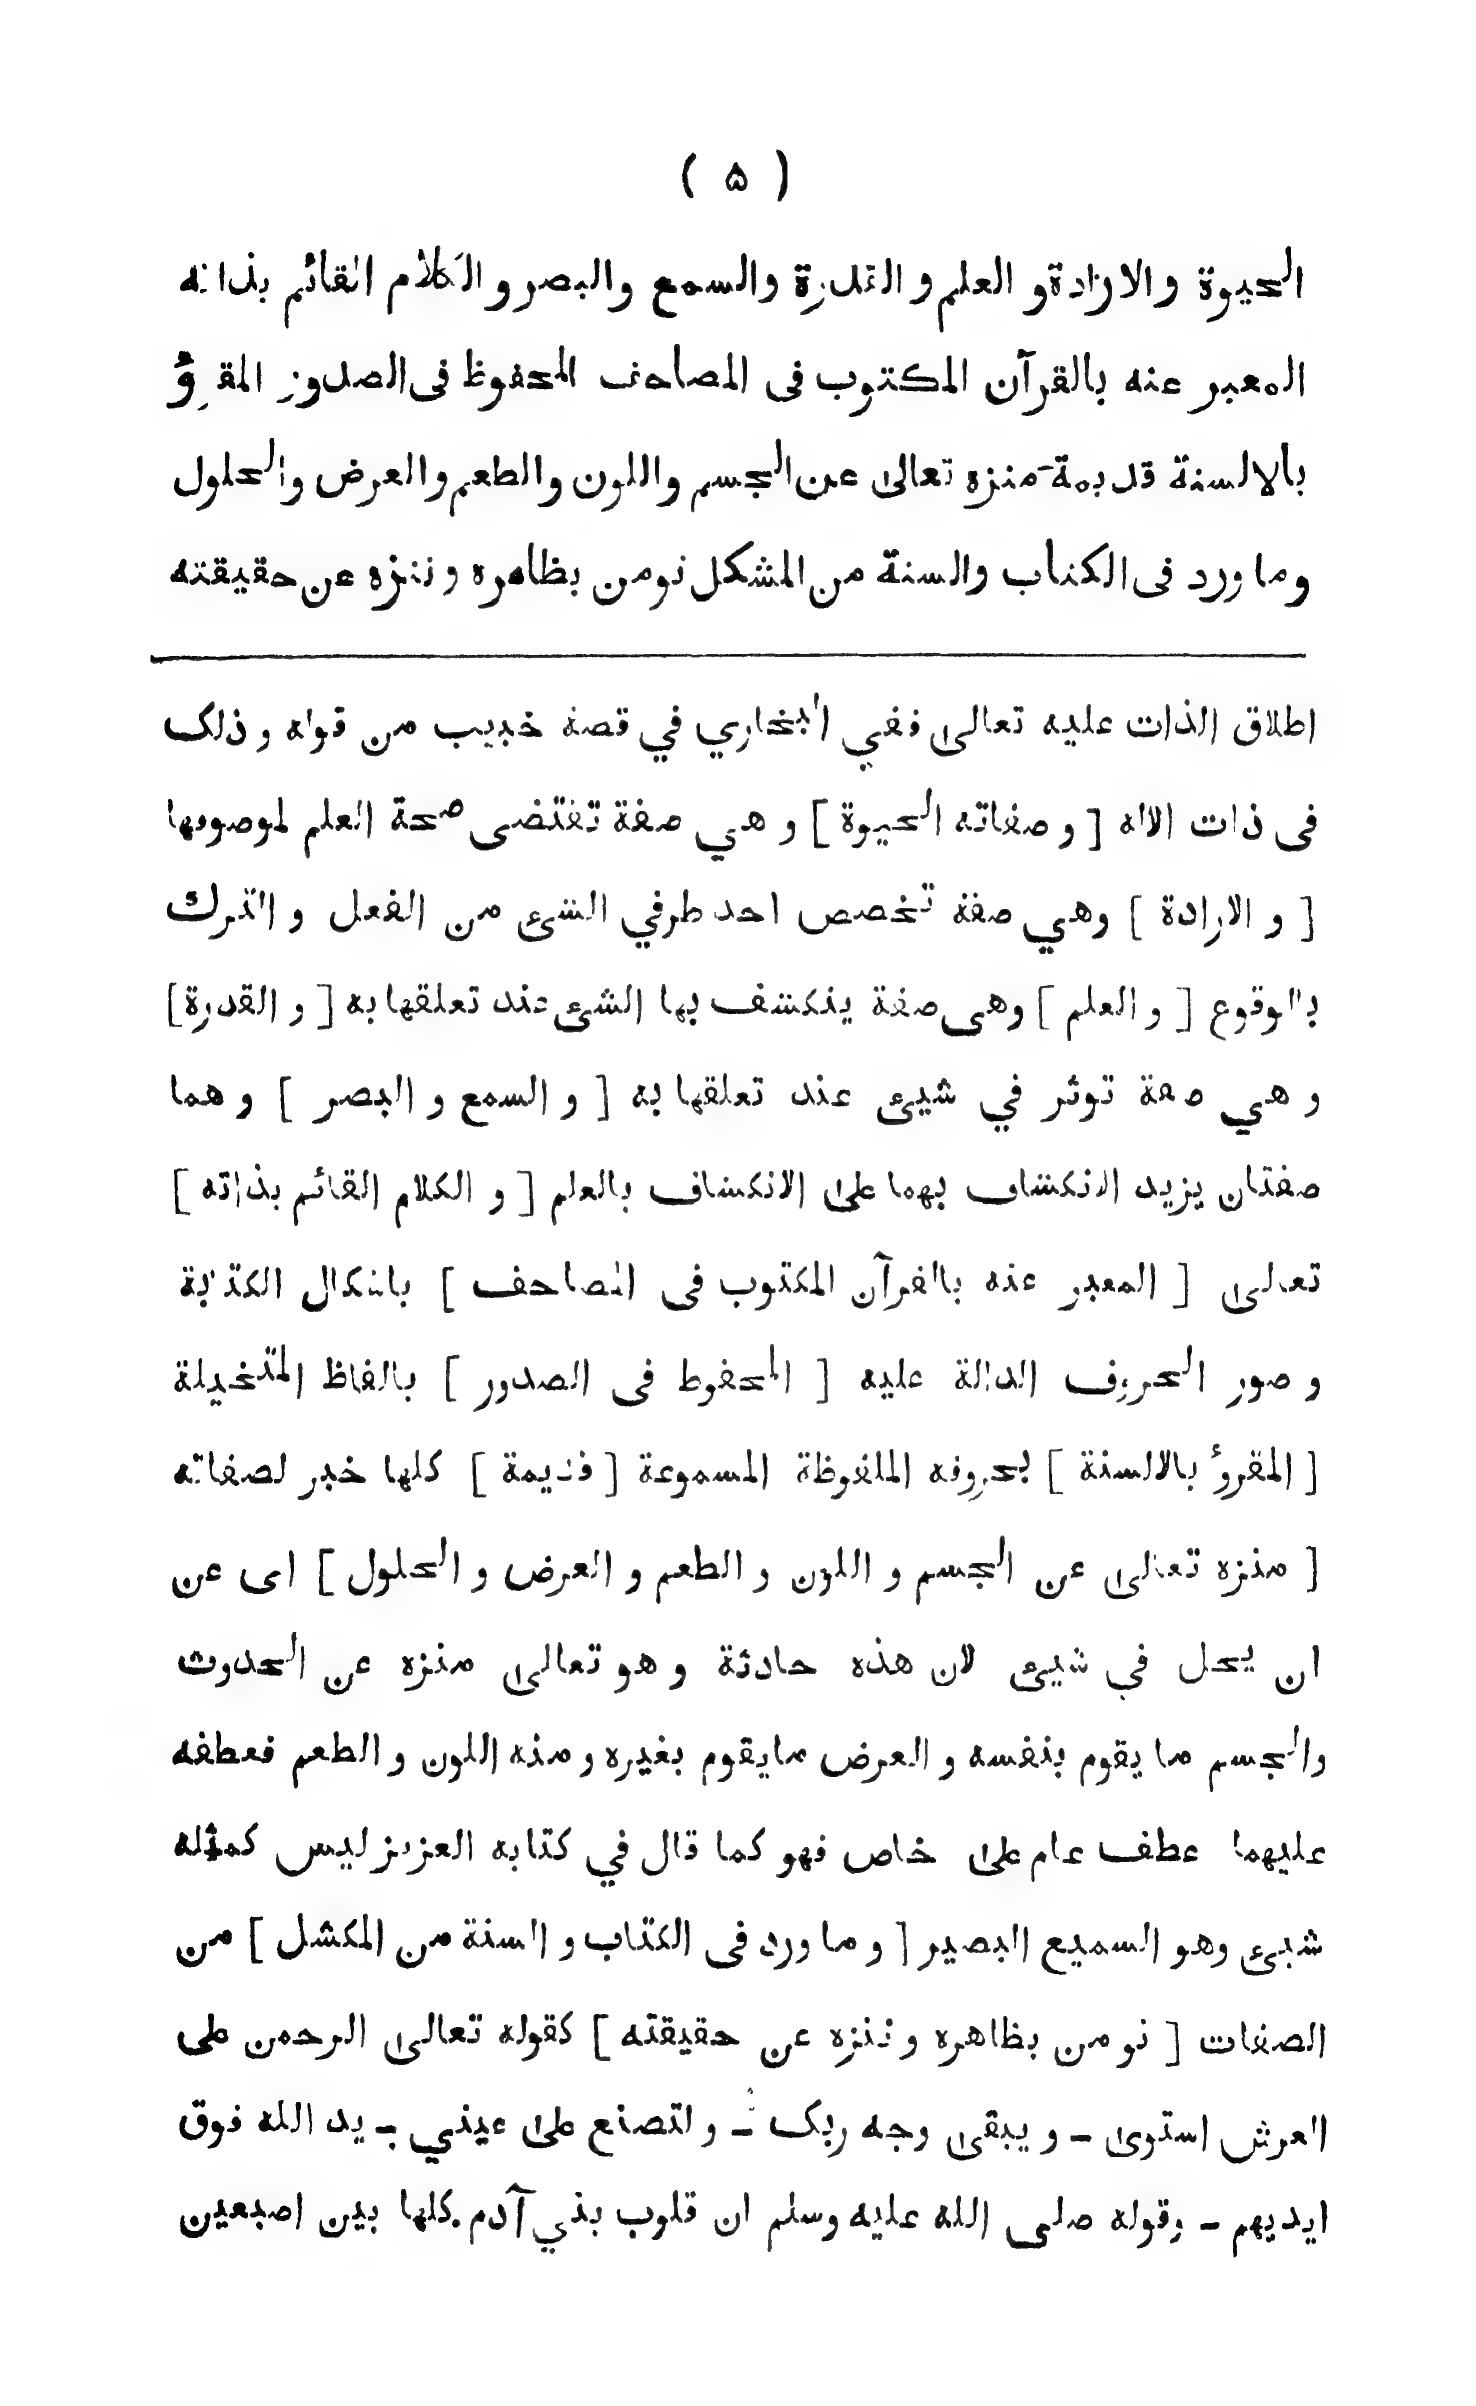 ( ۵ )
الحيوة والارادة و العلم و القدرة والسمع والبصر و الكلام القائم بذاته
المعبر عنه بالقرآن المكتوب فى المصاحف المحفوظ فى الصدور المقروٴ
بالالسنة قديمة منزه تعالىٰ عن الجسم واللون والطعم والعرض والحلول
وما ورد فى الكتاب والسنة من المشكل نومن بظاهره و ننزه عن حقيقته
اطلاق الذات عليه تعالىٰ ففي البخاري في قصة خبيب من قوله و ذلك
فى ذات الاله [ و صفاته الحيوة ] و هي صفة تقتضى صحة العلم لموصوفها
[ و الارادة ] وهي صفة تخصص احد طرفي الشئ من الفعل و الترك
بالوقوع [ و العلم ] وهى صفة ينكشف بها الشئ عند تعلقها به [ و القدرة]
و هي صفة توثر في شيئ عند تعلقها به [ و السمع و البصر ] و هما
صفتان يزيد الانكشاف بهما علىٰ الانكشاف بالعلم [ و الكلام القائم بذاته ]
تعالىٰ [ المعبر عنه باالقرآن المكتوب فى المصاحف ] باشكال الكتابة
و صور الحروف الدالة عليه [ المحفوظ فى الصدور ] بالفاظ المتخيلة
[ المقروٴ بالالسنة ] بحروفه الملفوظة المسموعة [ قديمة ] كلها خبر لصفاته
[ منزه تعالىٰ عن الجسم و اللون و الطعم و العرض و الحلول ] اى عن
ان يحل في شيئ لان هذه حادثة و هو تعالىٰ منزه عن الحدوث
والجسم ما يقوم بنفسه و العرض مايقوم بغيره و منه اللون و الطعم فعطفه
عليهما عطف عام علىٰ خاص فهو كما قال في كتابه العزيز ليس كمثله
شيئ وهو السميع البصير [ و ما ورد فى الكتاب و السنة من المكشل ] من
الصفات [ نومن بظاهره و ننزه عن حقيقته ] كقوله تعالىٰ الرحمن على
العرش استوىٰ ـ و يبقىٰ وجه ربك ـ و لتصنع علىٰ عيني ـ يد الله فوق
ايديهم ـ وقوله صلى الله عليه وسلم ان قلوب بني آدم كلها بين اصبعين